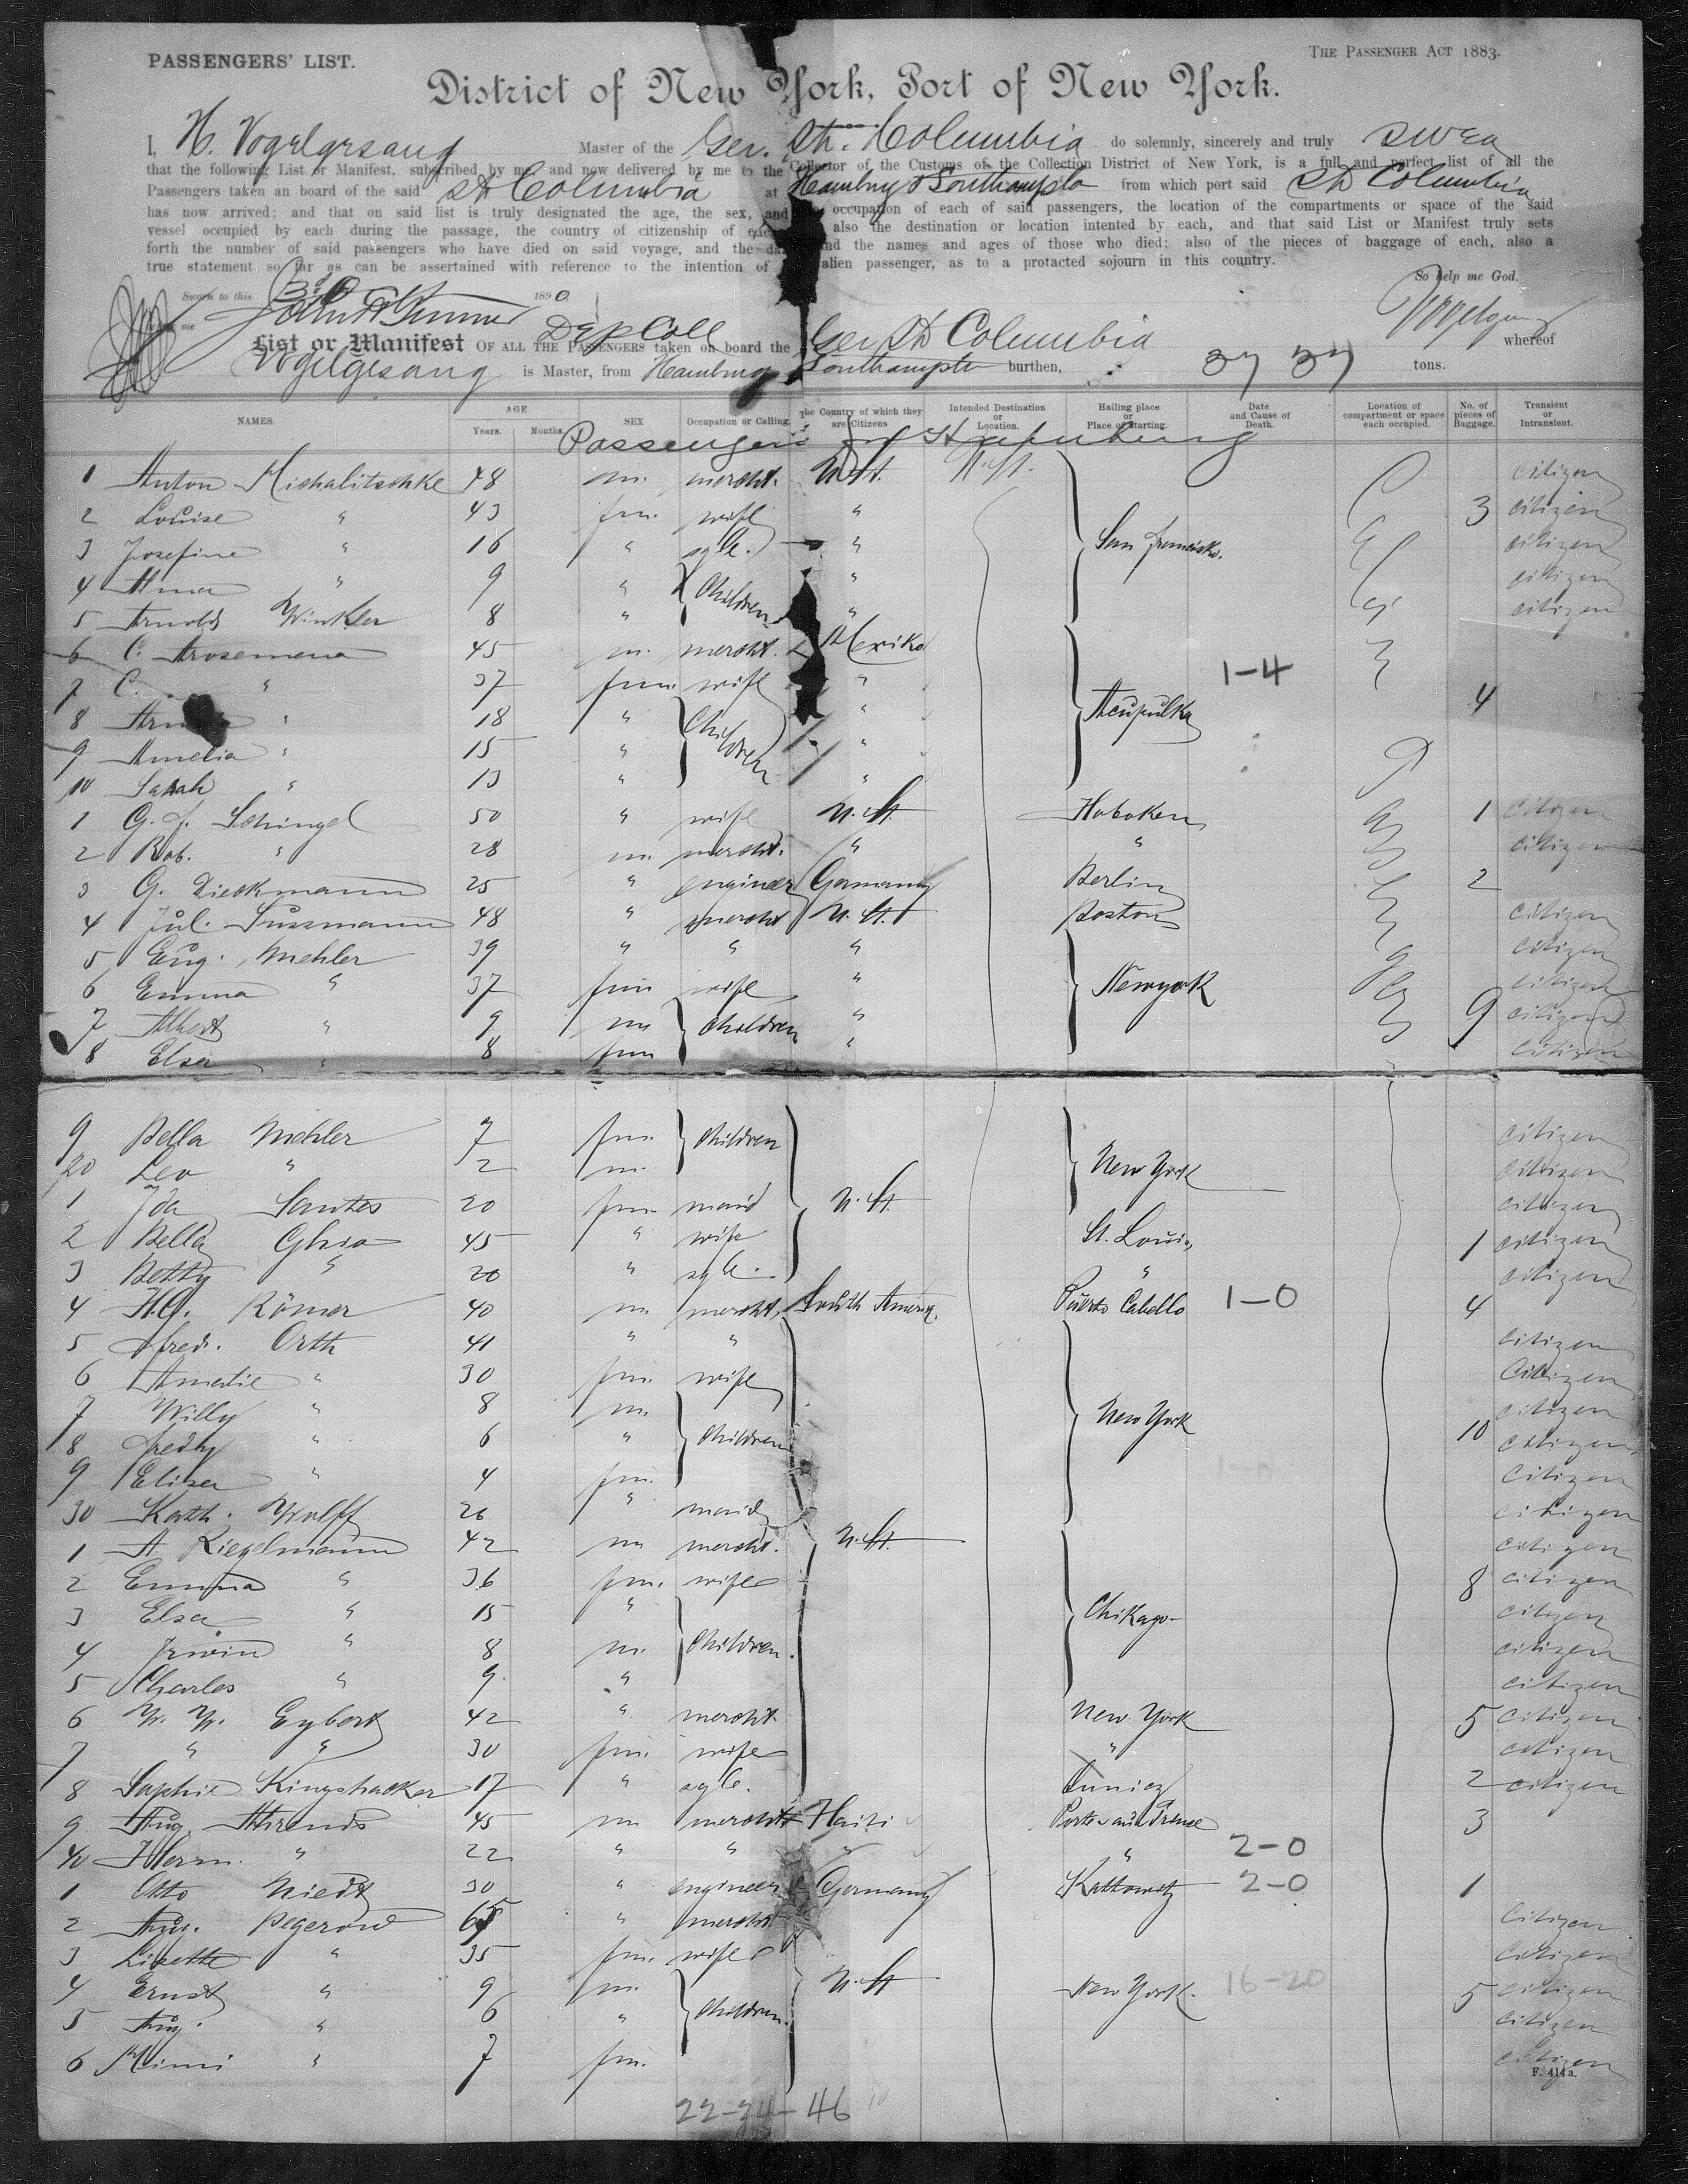 PASSENGERS' LIST.
THE PASSENGER ACT 1883.
District of New York, Port of New York.
I, H. Vogelgesang Master of the Ger. St. Columbia do solemnly, sincerely and truly swear
that the following List or Manifest, subscribed by me, and now delivered by me to the Collector of the Customs of the Collection District of New York, is a full and perfect list of all the
Passengers taken an board of the said St Columbia at Hamburg & Southampton from which port said St Columbia
has now arrived; and that on said list is truly designated the age, the sex, and occupation of each of said passengers, the location of the compartments or space of the said
vessel occupied by each during the passage, the country of citizenship of also the destination or location intented by each, and that said List or Manifest truly sets
forth the number of said passengers who have died on said voyage, and the and the names and ages of those who died; also of the pieces of baggage of each, also a
true statement so far as can be assertained with reference to the intention of alien passenger, as to a protacted sojourn in this country.
So help me God.
Sworn to this 1890
me Dep Coll Vogelgesang
List or Manifest OF ALL THE PASSENGERS taken on board the Ger St Columbia whereof
Vogelgesang is Master, from Hamburg Southampton burthen, 37 37 tons.
NAMES. AGE Years. Months. SEX Occupation or Calling. the Country of which they are Citizens Intended Destination or Location. Hailing place or Place of Starting. Date and Cause of Death. Location of compartment or space each occupied. No. of pieces of Baggage. Transient or Intransient.
Passengers of Hamburg
1 Anton Michalitschke 48 m. mercht. U. St. U. St. citizen
2 Louise " 43 fm. wife " 3 citizen
3 Josefine " 16 " sgle. " San Francisko. citizen
4 Alma " 9 " Children " citizen
5 Arnolds Winkler 8 " " citizen
6 C. Arosemena 45 m. mercht. Mexiko
7 C. " 37 fm. wife " 1-4
8 " 18 " Children " Acupulka 4
9 Amelia " 15 " "
10 Sarah " 13 " "
1 G. f. Schingel 50 " wife U. St. Hoboken 1 citizen
2 Rob. " 28 m. mercht. " " citizen
3 G. Dieckmann 25 " engineer Germany Berlin 2
4 Jul. Sussmann 48 " mercht U. St. Boston citizen
5 Eug. Mehler 39 " " " citizen
6 Emma " 37 fm wife " Newyork citizen
7 Albert " 9 m Children " 9 citizen
8 Elsa " 8 fm " citizen
9 Bella Mehler 7 fm. Children citizen
20 Leo " 2 m. New York citizen
1 Ida Santes 20 fm. maid U. St. citizen
2 Bella Ghio 45 " wife St. Louis 1 citizen
3 Betty " 20 " sgle. " citizen
4 H.G. Römer 40 m mercht. South Amerik. Puerto Cabello 1-0 4
5 Fredr. Orth 41 " " citizen
6 Amelie " 30 fm. wife citizen
7 Willy " 8 m. New York citizen
8 Fredy " 6 " Children 10 citizen
9 Elisa " 4 fm. citizen
30 Kath. Wolff 26 " maid citizen
1 A. Riegelmann 42 m mercht. U. St. citizen
2 Emma " 36 fm. wife 8 citizen
3 Elsa " 15 " Chikago citizen
4 Irwin " 8 m. Children. citizen
5 Charles " 9. " citizen
6 W. W. Eybert 42 " mercht. New York 5 citizen
7 " " 30 fm. wife " citizen
8 Sophie Kingshacker 17 " sgle. 2 citizen
9 Aug. Ahrends 45 m mercht Haiti Port au Prence 3
40 Herm. " 22 " " " " 2-0
1 Otto Niedt 30 " engineer Germany Kattowitz 2-0 1
2 Aug. Pegerow 65 " mercht citizen
3 Lisette " 35 fm. wife citizen
4 Ernst " 9 m. U. St New York. 16-20 citizen
5 Aug. " 6 " Children. 5 citizen
6 Mimi " 7 fm. citizen
F. 414a.
22-24-46 10